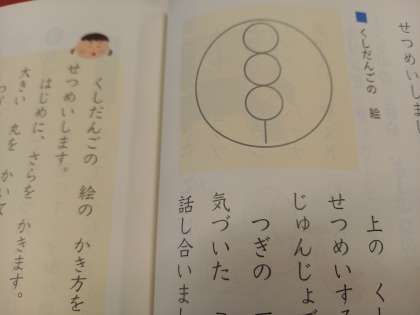 せつめいしまし
くしだんごの 絵
上の くし
せつめいする
じゅんじょ
つぎの
気づいた
話し合いまし
くしだんごの 絵の かき方を
せつめいします。
はじめに、さらを かきます。
大きい 丸を かいて